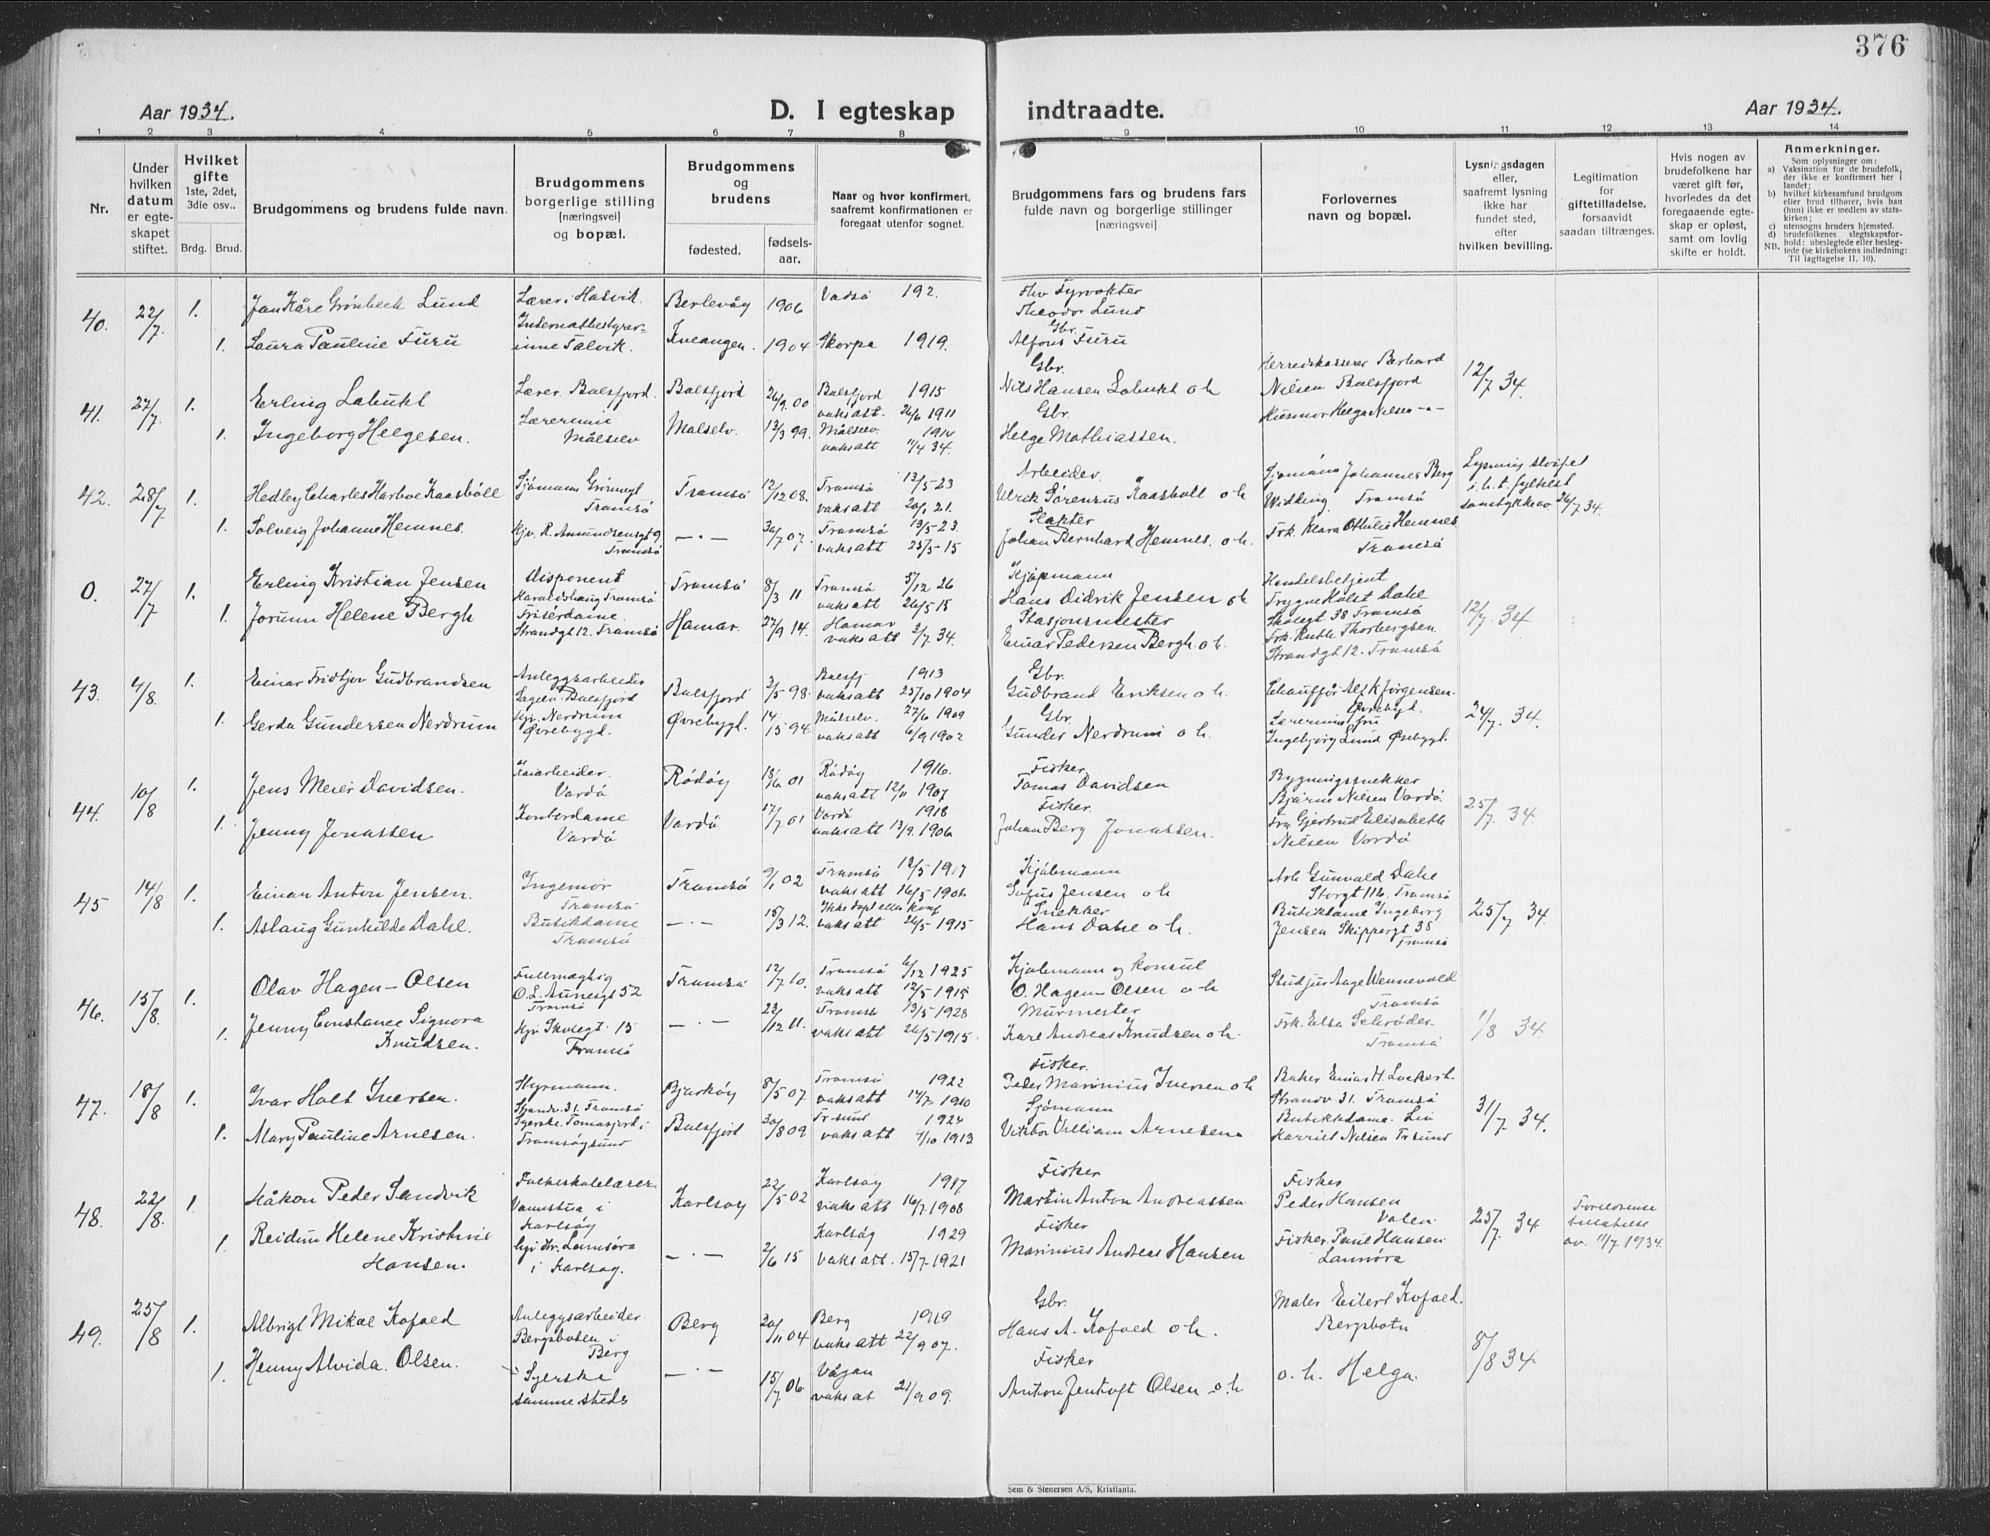 376
Aar 1934.
D. I egteskap
indtraadte.
Aar 1934.
1 2 3 4 5 6 7 8 9 10 11 12 13 14
Nr.
Under hvilken datum er egteskapet stiftet.
Hvilket gifte
1ste, 2det, 3die osv..
Brdg. Brud.
Brudgommens og brudens fulde navn.
Brudgommens borgerlige stilling [næringsvei] og bopæl.
Brudgommens og brudens
fødested.
fødselsaar.
Naar og hvor konfirmert, saafremt konfirmationen er foregaat utenfor sognet.
Brudgommens fars og brudens fars fulde navn og borgerlige stillinger [næringsvei]
Forlovernes navn og bopæl.
Lysningsdagen eller, saafremt lysning ikke har fundet sted, efter hvilken bevilling.
Legitimation for giftetilladelse, forsaavidt saadan tiltrænges.
Hvis nogen av brudefolkene har været gift før, hvorledes da det foregaaende egteskap er opløst, samt om lovlig skifte er holdt.
Anmerkninger.
Som oplysninger om:
a) Vaksination for de brudefolk, der ikke er konfirmert her i landet;
b) hvilket kirkesamfund brudgom eller brud tilhører, hvis han (hun) ikke er medlem av statskirken;
c) utensogns bruders hjemsted.
d) brudefolkenes slegtskapsforhold: ubeslegtede eller beslegtede (se kirkebokens indledning:
NB. Til iagttagelse II. 10).
40. 22/7 1. Jan Kåre Grønbech Lund Lærer i Hasvik. Berlevåg 1906 Vadsø 192. Fhv Fyrvokter Theodor Lund
1. Laura Pauline Furu Internatbestyrerinne Talvik. Kvenangen. 1904 Skorpa 1919. Gbr. Alfons Furu
41. 27/7 1. Erling Labukt Lærer. Balsfjord. Balsfjord 26/9.00 Balsfjord 1915 vaks att. 26/6 1911 Gbr. Nils Hansen Labukt o h Herredskasserer Berhard Nilsen Balsfjord 12/7 34.
1. Ingeborg Helgesen. Lærerinne Målselv Målselv. 13/3 99. Målselv. 1914 vaks att 11/4 34. Gbr. Helge Mathiassen. Husmor Helga Nilsen -"-
42. 28/7 1. Hedley Charles Harboe Kaasbøll Sjømann Grønnegt Tromsø Tromsø 12/12 08. Tromsø 13/5-23 vaksatt 20/1 21. Arbeider Ulrik Sørensus Kaasbøll o h Sjømann Johannes Berg Widding Tromsø Lysning sløifet i. h. t. fylkest samtykke av 26/7 34.
1. Solveig Johanne Hemnes. Hjv. R. Amundsensgt 9 Tromsø -"- 30/7 07. Tromsø 13/5-23. vaksatt 25/5-15 Slakter Johan Bernhard Hemnes. o. h. Frk. Klara Othilie Hemnes Tromsø
0. 27/7 1. Erling Kristian Jensen Disponent Haraldshaug Tromsø Tromsø 8/3 11 Tromsø 5/12 26 vaksatt 26/5 15 Kjøpmann Hans Didrik Jensen o h Handelsbetjent Trygve Holst Dahl Skolegt 38 Tromsø 12/7. 34.
1. Jorunn Helene Bergh Frisérdame Strandgt 12. Tromsø Hamar. 27/9 14. Hamar vaksatt 2/7. 34. Stasjonsmester Einar Pedersen Bergh. o h. Frk. Ruth Thorbergsen Strandgt 12. Tromsø
43. 4/8. 1. Einar Fridtjov Gudbrandsen Anleggsarbeider Sagelv Balsfjord Balsfjord 3/5 98. Balsfj. 1913 vaksatt 25/10 1904 Gbr. Gudbrand Eriksen o h. Chauffør Alf Kjørgensen. Øvrebygd. 24/7. 34.
1. Gerda Gundersen Nerdrum Hjv. Nerdrum Øvrebygd. Øvrebygd. 14/5 94 Målselv. 27/6 1909 vaksatt 6/9 1902 Gbr. Gunder Nerdrum o h. Lærerinne fru Ingebjørg Lund Øvebygd.
44. 10/8 1. Jens Meier Davidsen. Kaiarbeider. Vardø Rødøy 18/6 01 Rødøy 1916. vaksatt 12/11 1907 Fisker Tomas Davidsen Bygningssnekker Bjarne Nilsen Vardø. 25/7. 34.
1. Jenny Jonassen Kontordame Vardø Vardø 17/7 01 Vardø 1918 vaksatt 13/9. 1906 Fisker. Johan Berg Jonassen. Fru Gjertrud Elisabeth Nilsen Vardø
45 14/8 1. Einar Anton Jensen. Ingeniør Tromsø Tromsø 9/1 02 Tromsø 13/5 1917 vaksatt 16/5 1906 Kjøbmann Sofus Jensen o h Arb Gunvald Dahl Storgt 116. Tromsø 25/7 34.
1. Aslaug Gunhilde Dahl. Butikdame Tromsø -"- 15/3 12. Ikke døpt eller konf vaksatt 26/5 1915 Snekker Hans Dahl o h. Butikdame Ingeborg Jensen Skippergt 38 Tromsø
46. 15/8. 1. Olav Hagen-Olsen Fullmægtig O. L. Aunesgt 52 Tromsø Tromsø 12/7 10. Tromsø 6/12 1925 vaksatt 12/5 1915 Kjøbmann og konsul O. Hagen-Olsen o h Stud jus Aage Wennevold Tromsø 1/8 34.
1. Jenny Constance Signora Knudsen. Hjv Skolegt. 15 Tromsø -"- 23/12 11. Tromsø 13/5 1928 vaksatt 26/5 1915. Murmester Karl Andreas Knudsen o h. Frk. Elsa Schrøder. Tromsø
47. 18/8 1. Ivar Holt Iversen. Styrmann. Strandv. 31. Tromsø Bjarkøy 8/5 07 Tromsø 1922 vaksatt 14/7-1910 Fisker. Peder Marinius Iversen o h Baker Einar H. Strandv 31. Tromsø 31/7. 34.
1. Mary Pauline Arnesen. Syerske. Tomasjord i Tromsøysund Balsfjord 30/8 09 Tr-sund 1924 vaksatt 4/10 1913 Sjømann Viktor Villiam Arnesen. Butikkdame. Liv Harriet Nilsen Tr.sund
48. 22/8. 1 Håkon Peder Sandvik Folkeskolelærer Vannstua i Karlsøy Karlsøy 22/5 02 Karlsøy 1917 vaksatt 16/7-1908 Fisker Martin Anton Andreassen Fisker Peder Hansen Valen 25/7. 34 Foreldrenes tillatelse av. 11/7. 1934.
1. Reidun Helene Kristine Hansen. hjv Hr. Lanesøra i Karlsøy. -"- 2/6 15 Karlsøy 1929 Vaksatt. 15/7-1921 Fisker Marinius Andreas Hansen Fisker. Paul Hansen Lannøra
49. 25/8 1. Albrigt Mikal Kofoed Anleggsarbeider Bergsboten i Berg Berg 20/11 04 Berg 1919 vaksatt 22/9 07. Gbr. Hans A. Kofoed o h. Maler Eilert Kofoed. Bergsbotn 8/8 34.
1. Henny Alvida. Olsen. Syerske sammesteds -"- 15/7 06 Vågan vaksat 21/9 09. Fisker Anton Jentoft Olsen o h o. h. Helga.
Sem & Stenersen A/S, Kristiania.